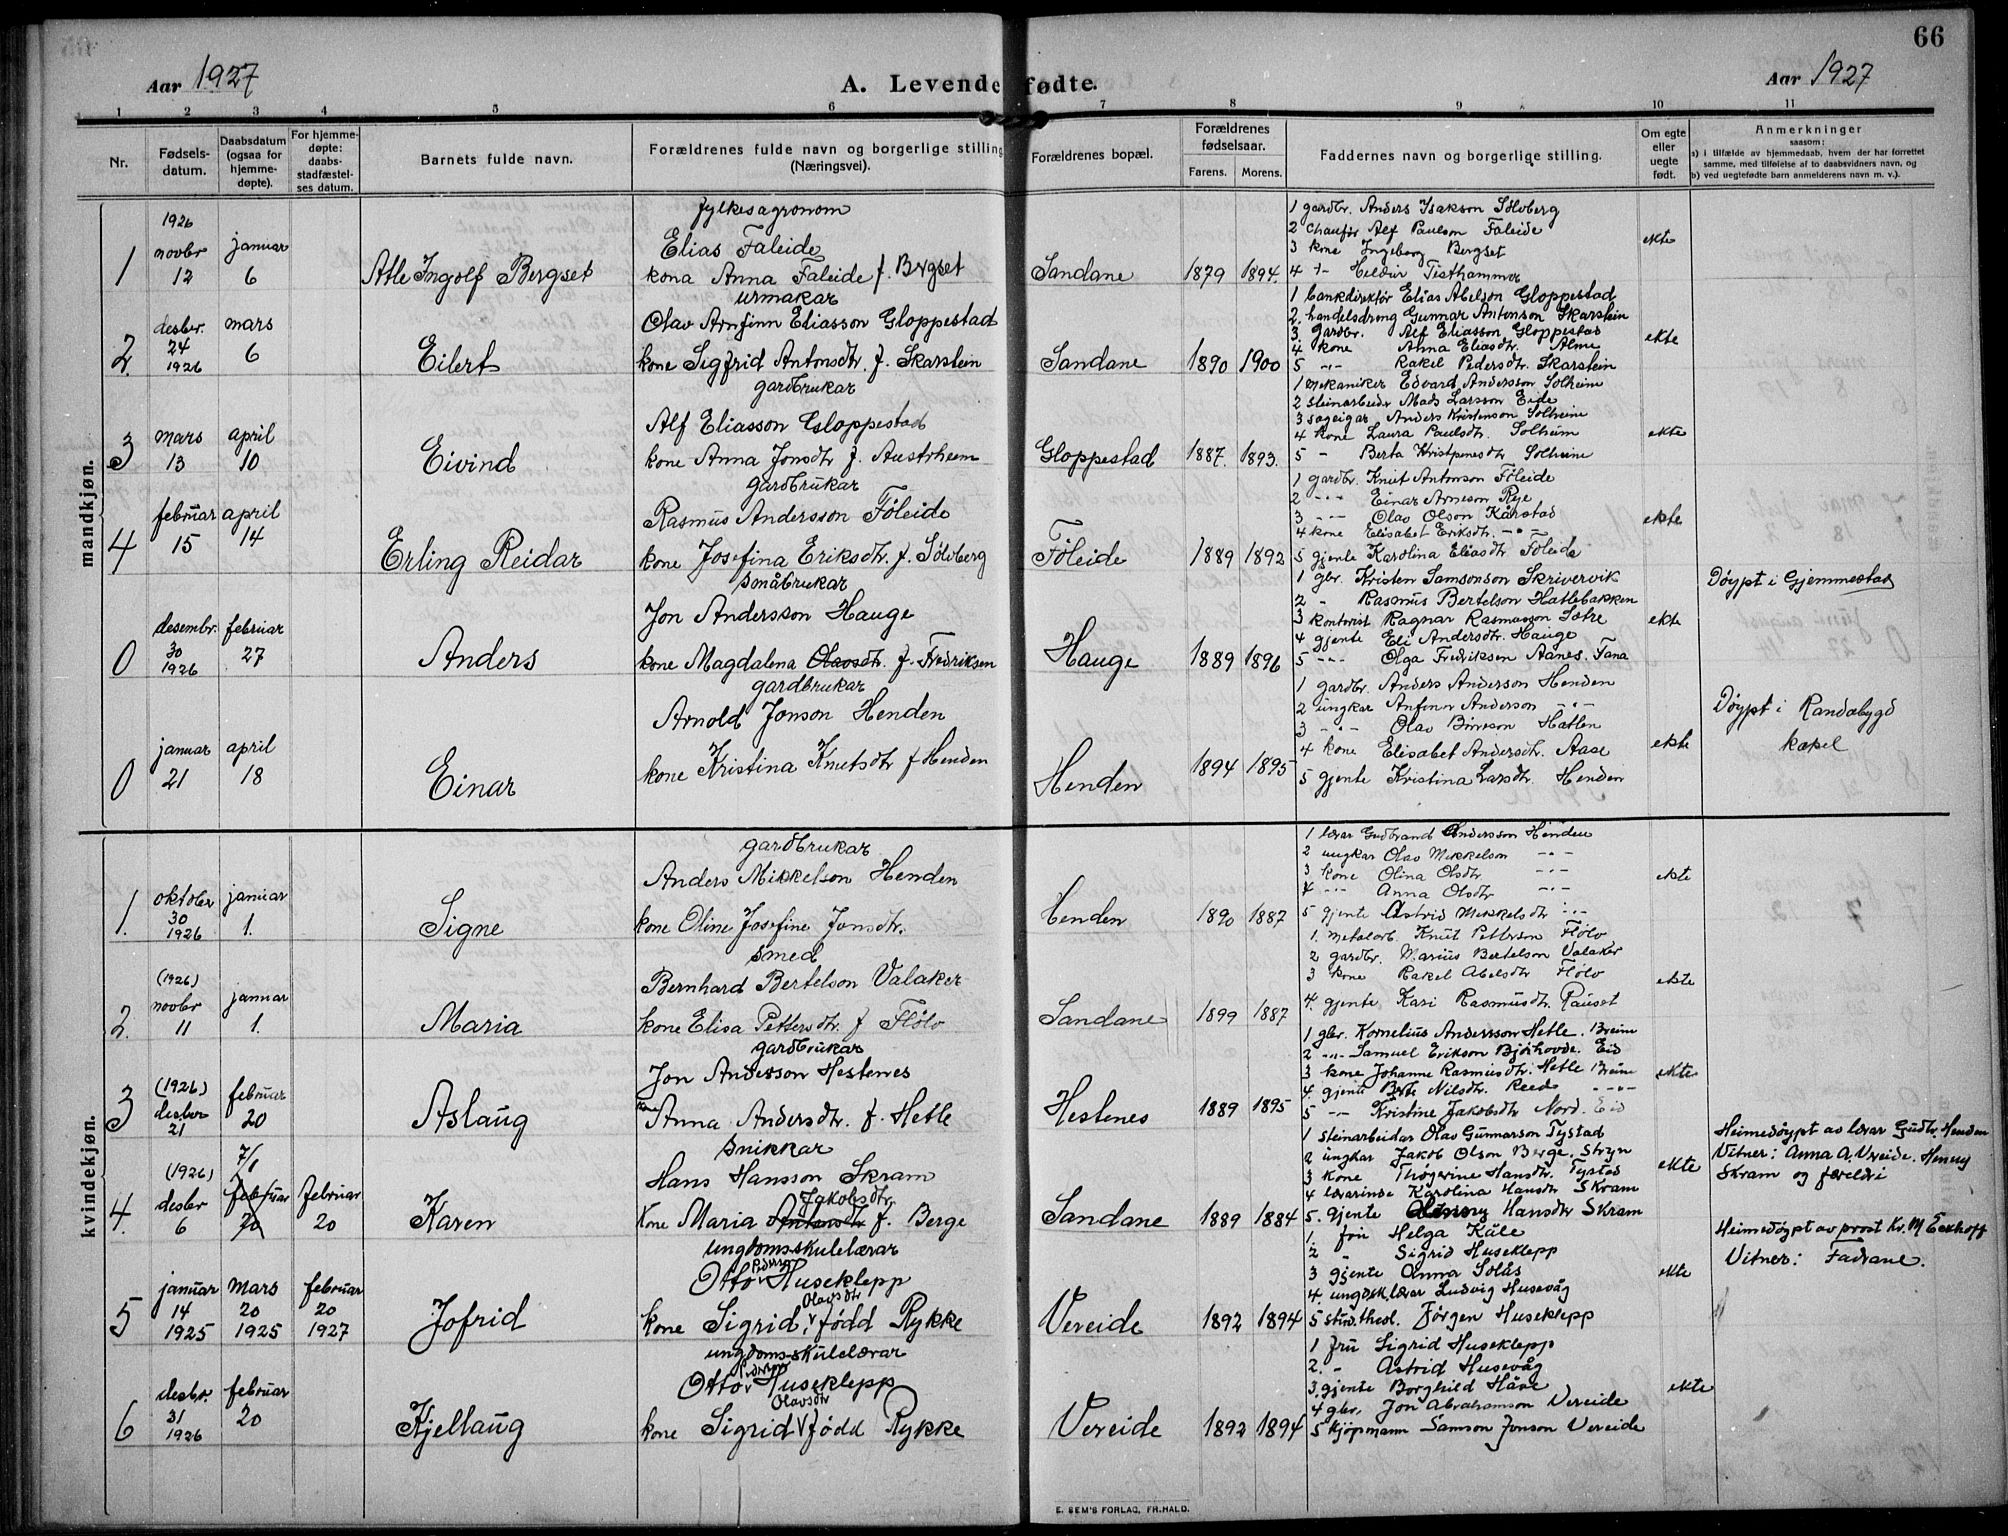 66
Aar 1927
A. Levende fødte.
Aar 1927
1 2 3 4 5 6 7 8 9 10 11
Nr.
Fødsels-
datum.
Daabsdatum
(ogsaa for
hjemme-
døpte).
For hjemme-
døpte:
daabs-
stadfæstel-
ses datum.
Barnets fulde navn.
Forældrenes fulde navn og borgerlige stilling
(Næringsvei).
Forældrenes bopæl.
Forældrenes
fødselsaar.
Farens. Morens.
Faddernes navn og borgerlige stilling.
Om egte
eller
uegte
født.
Anmerkninger
saasom:
a) i tilfælde av hjemmedaab, hvem der har forrettet
samme, med tilføielse af to daabsvidners navn, og
b) ved uegtefødte barn anmelderens navn m. v.).
mandkjøn.
1
1926
novbr
12
januar
6
Atle Ingolf Bergset
fylkesagronom
Elias Faleide
kona Anna Faleide f. Bergset
Sandane
1879 1894.
1 gardbr. Anders Isakson Sølvberg
2 chaufør Alf Paulson Faleide
3 kone Ingeborg Bergset
4 Heldur Tisthammer
ekte
2.
desbr.
24
1926
mars
6
Eilert
urmakar
Olav Arnfinn Eliasson Gloppestad
kone Sigfrid Antonsdtr. f. Skarstein
Sandane
1890 1900
1 bankdirektør Elias Abelson Gloppestad
2. handelsdreng Gunnar Antonson Skarstein
3. gardbr. Alf Eliasson Gloppestad
4 kone Anna Eliasdtr. Alme
5 -"- Rakel Pedersdtr. Skarstein
ekte
3
mars
13
april
10
Eivind
gardbrukar
Alf Eliasson Gloppestad
kone Anna Jonsdtr f. Austrheim
Gloppestad
1887. 1893.
1 mekaniker Edvard Andersson Solheim
2 steinarbeider Mads Larsson Eide
3 sageigar Anders Kristenson Solheim
4 kone Laura Paulsdtr. Solheim
5 - Berta Kristpensdtr Solheim
ekte
4
februar
15
april
14
Erling Reidar
gardbrukar
Rasmus Andersson Føleide
kone Josefina Eriksdtr. f. Sølvberg
Føleide
1889 1892
1 gardbr. Knut Antonson Føleide
2 -"- Einar Arneson Rye
3 -"- Olav Olson Kårstad
4 kone Elisabet Eriksdtr. -"-
5 gjente Karolina Eliasdtr. Føleide
ekte
0
desembr.
30
1926
februar
27
Anders
småbrukar
Jon Andersson Hauge
kone Magdalena Olavsdtr. f. Fredriksen
Hauge
1889 1896
1 gbr. Kristen Samsonson Skrivervik
2 - Rasmus Bertelson Hatlebakken
3 kontorist Ragnar Rasmusson Sætre
4 gjente Eli Andersdtr. Hauge
5 -"- Olga Fredriksen Aanes. Tana
ekte
Døypt i Gjemmestad
0
januar
21
april
18
Einar
gardbrukar
Arnold Jonson Henden
kone Kristina Knutsdtr f Henden
Henden
1894 1895
1 gardbr. Anders Anderson Henden
2 ungkar Anfinn Anderson -"-
3 -"- Olav Hatlen
4 kone Elisabet Andersdtr. Aase
5 gjente Kristina Larsdtr. Henden
ekte
Døypt i Randabygd
kapel
kvindekjøn.
1.
oktober
30
1926
januar
1.
Signe
gardbrukar
Anders Mikkelson Henden
kone Oline Josefine Jonsdtr.
Henden
1890 1887
1 lærar Gudbrand Andersson Henden
2 ungkar Olav Mikkelson -"-
3 kone Olina Olsdtr -"-
4 -"- Anna Olsdtr -"-
5 gjente Astrid Mikkelsdtr -"-
ekte
2.
(1926)
novbr
11
januar
1.
Maria
smed
Bernhard Bertelson Valaker
kone Elisa Pettersdtr. f Fløtv
Sandane
1899 1887
1. metalarb. Knut Petterson
2 gardbr. Marius Bertelson Valaker
3 kone Rakel Abelsdtr
4. gjente Kari Rasmusdtr. Rauset
ekte
3
(1926)
desber
21
februar
20
Aslaug
gardbrukar
Jon Andersson Hestenes
kone Anna Andersdtr. f. Hetle
Hestenes
1889 1895
1 gbr. Kornelius Andersson Hetle. Breim
2 -"- Samuel Erikson Bjørhovde. Eid
3 kone Johanne Rasmusdtr. Hetle Breim
4. gjente Berte Nilsdtr. Reed -"-
5 -"- Kristine Jakobsdtr Nord. Eid
ekte
4.
(1926)
desbr
6
7/1
februar
20
februar
20
Karen
snikkar
Hans Hansson Skram
Jakobsdtr
Kone Maria Antonsdtr f. Berge
Sandane
1889 1884
1 steinarbeidar Olav Gunnarson Tystad
2 ungkar Jakob Olson Berge, Stryn
3 kone Thøgerine Hansdtr. Tystad
4 lærarinde Karolina Hansdtr Skram
5. gjente Hansdtr Skram
ekte
Heimedøypt av lærar Gudbr. Henden
Vitner: Anna A. Vereide. Henny
Skram og foreldri
5
januar
14
1925
mars
20
1925
februar
20
1927
Jofrid
ungdomsskulelærar
Otto Pederson Huseklepp
Olavsdtr
kone Sigrid, født Rykke
Vereide
1892 1894
1. frü Helga Kåle
2 " Sigrid Huseklepp
3 gjente Anna Solås
4. ungdsk.lærar Ludvig Husevåg
5 stud. theol. Jørgen Huseklepp
ekte
Heimedøypt av prost Kr. M. Eckhoff
Vitner: Fadrane.
6
desbr.
31
1926
februar
20
Kjellaug
ungdomsskulelærar
Otto Pederson Huseklepp
Olavsdtr
kone Sigrid født Rykke
Vereide
1892 1894
1 frü Sigrid Huseklepp
2. - Astrid Husevåg
3. gjente Borghild Håve
4 gbr. Jon Abrahamson Vereide
5 kjøpmann Samson Jonson Vereide
ekte
E. SEM'S FORLAG, FR.HALD.